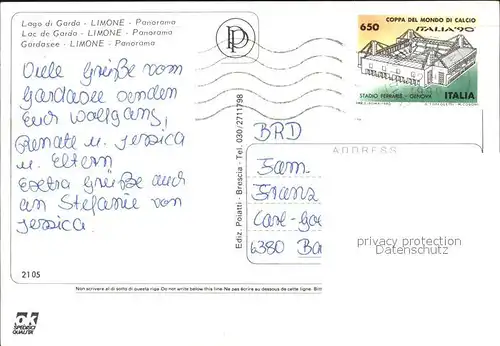 Lago di Garda - LIMONE - Panorama
Lac de Garda - LIMONE - Panorama
Gardasee - LIMONE - Panorama
Viele Grüße vom
Gardasee senden
Euch Wolfgang,
Renate u. Jessica
u. Eltern
Extra Grüße auch
an Stefanie von
Jessica.
2105
Non scrivere al di sotto di questa riga Do not write below this line Ne pas écrire au dessous de cette ligne. Bitt
OK
SPEDISCI
QUALITA'
Ediz. Poiatti - Brescia - Tel. 030/2711798
PP
650
COPPA DEL MONDO DI CALCIO
ITALIA '90
STADIO FERRARIS - GENOVA
ITALIA
BRD
ADDRESS
Fam
Franz
Carl-
6380 Ba
privacy protection
veikkos.com